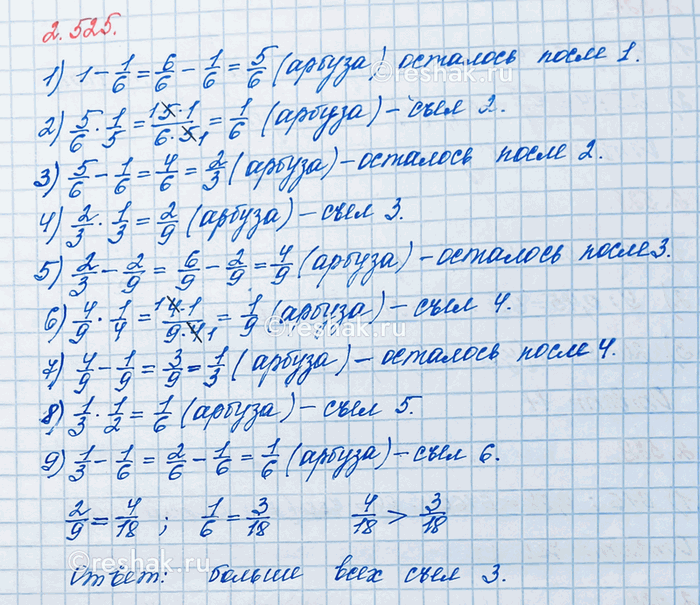 2.525.
1) 1 - 1/6 = 6/6 - 1/6 = 5/6 (арбуза) осталось после 1.
2) 5/6 · 1/5 = 5·1/6·5 = 1/6 (арбуза) - съел 2.
3) 5/6 - 1/6 = 4/6 = 2/3 (арбуза) - осталось после 2.
4) 2/3 · 1/3 = 2/9 (арбуза) - съел 3.
5) 2/3 - 2/9 = 6/9 - 2/9 = 4/9 (арбуза) - осталось после 3.
6) 4/9 · 1/4 = 4·1/9·4 = 1/9 (арбуза) - съел 4.
7) 4/9 - 1/9 = 3/9 = 1/3 (арбуза) - осталось после 4.
8) 1/3 · 1/2 = 1/6 (арбуза) - съел 5.
9) 1/3 - 1/6 = 2/6 - 1/6 = 1/6 (арбуза) - съел 6.
2/9 = 4/18 ; 1/6 = 3/18 4/18 > 3/18
Ответ: больше всех съел 3.
©reshak.ru
©reshak.ru
©reshak.ru